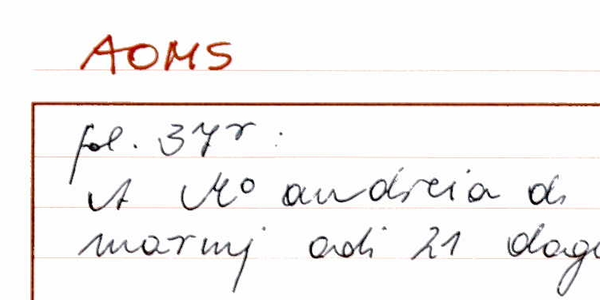 AOMS
fol. 37r:
A Mo andreia di
marinj adi 21 dago